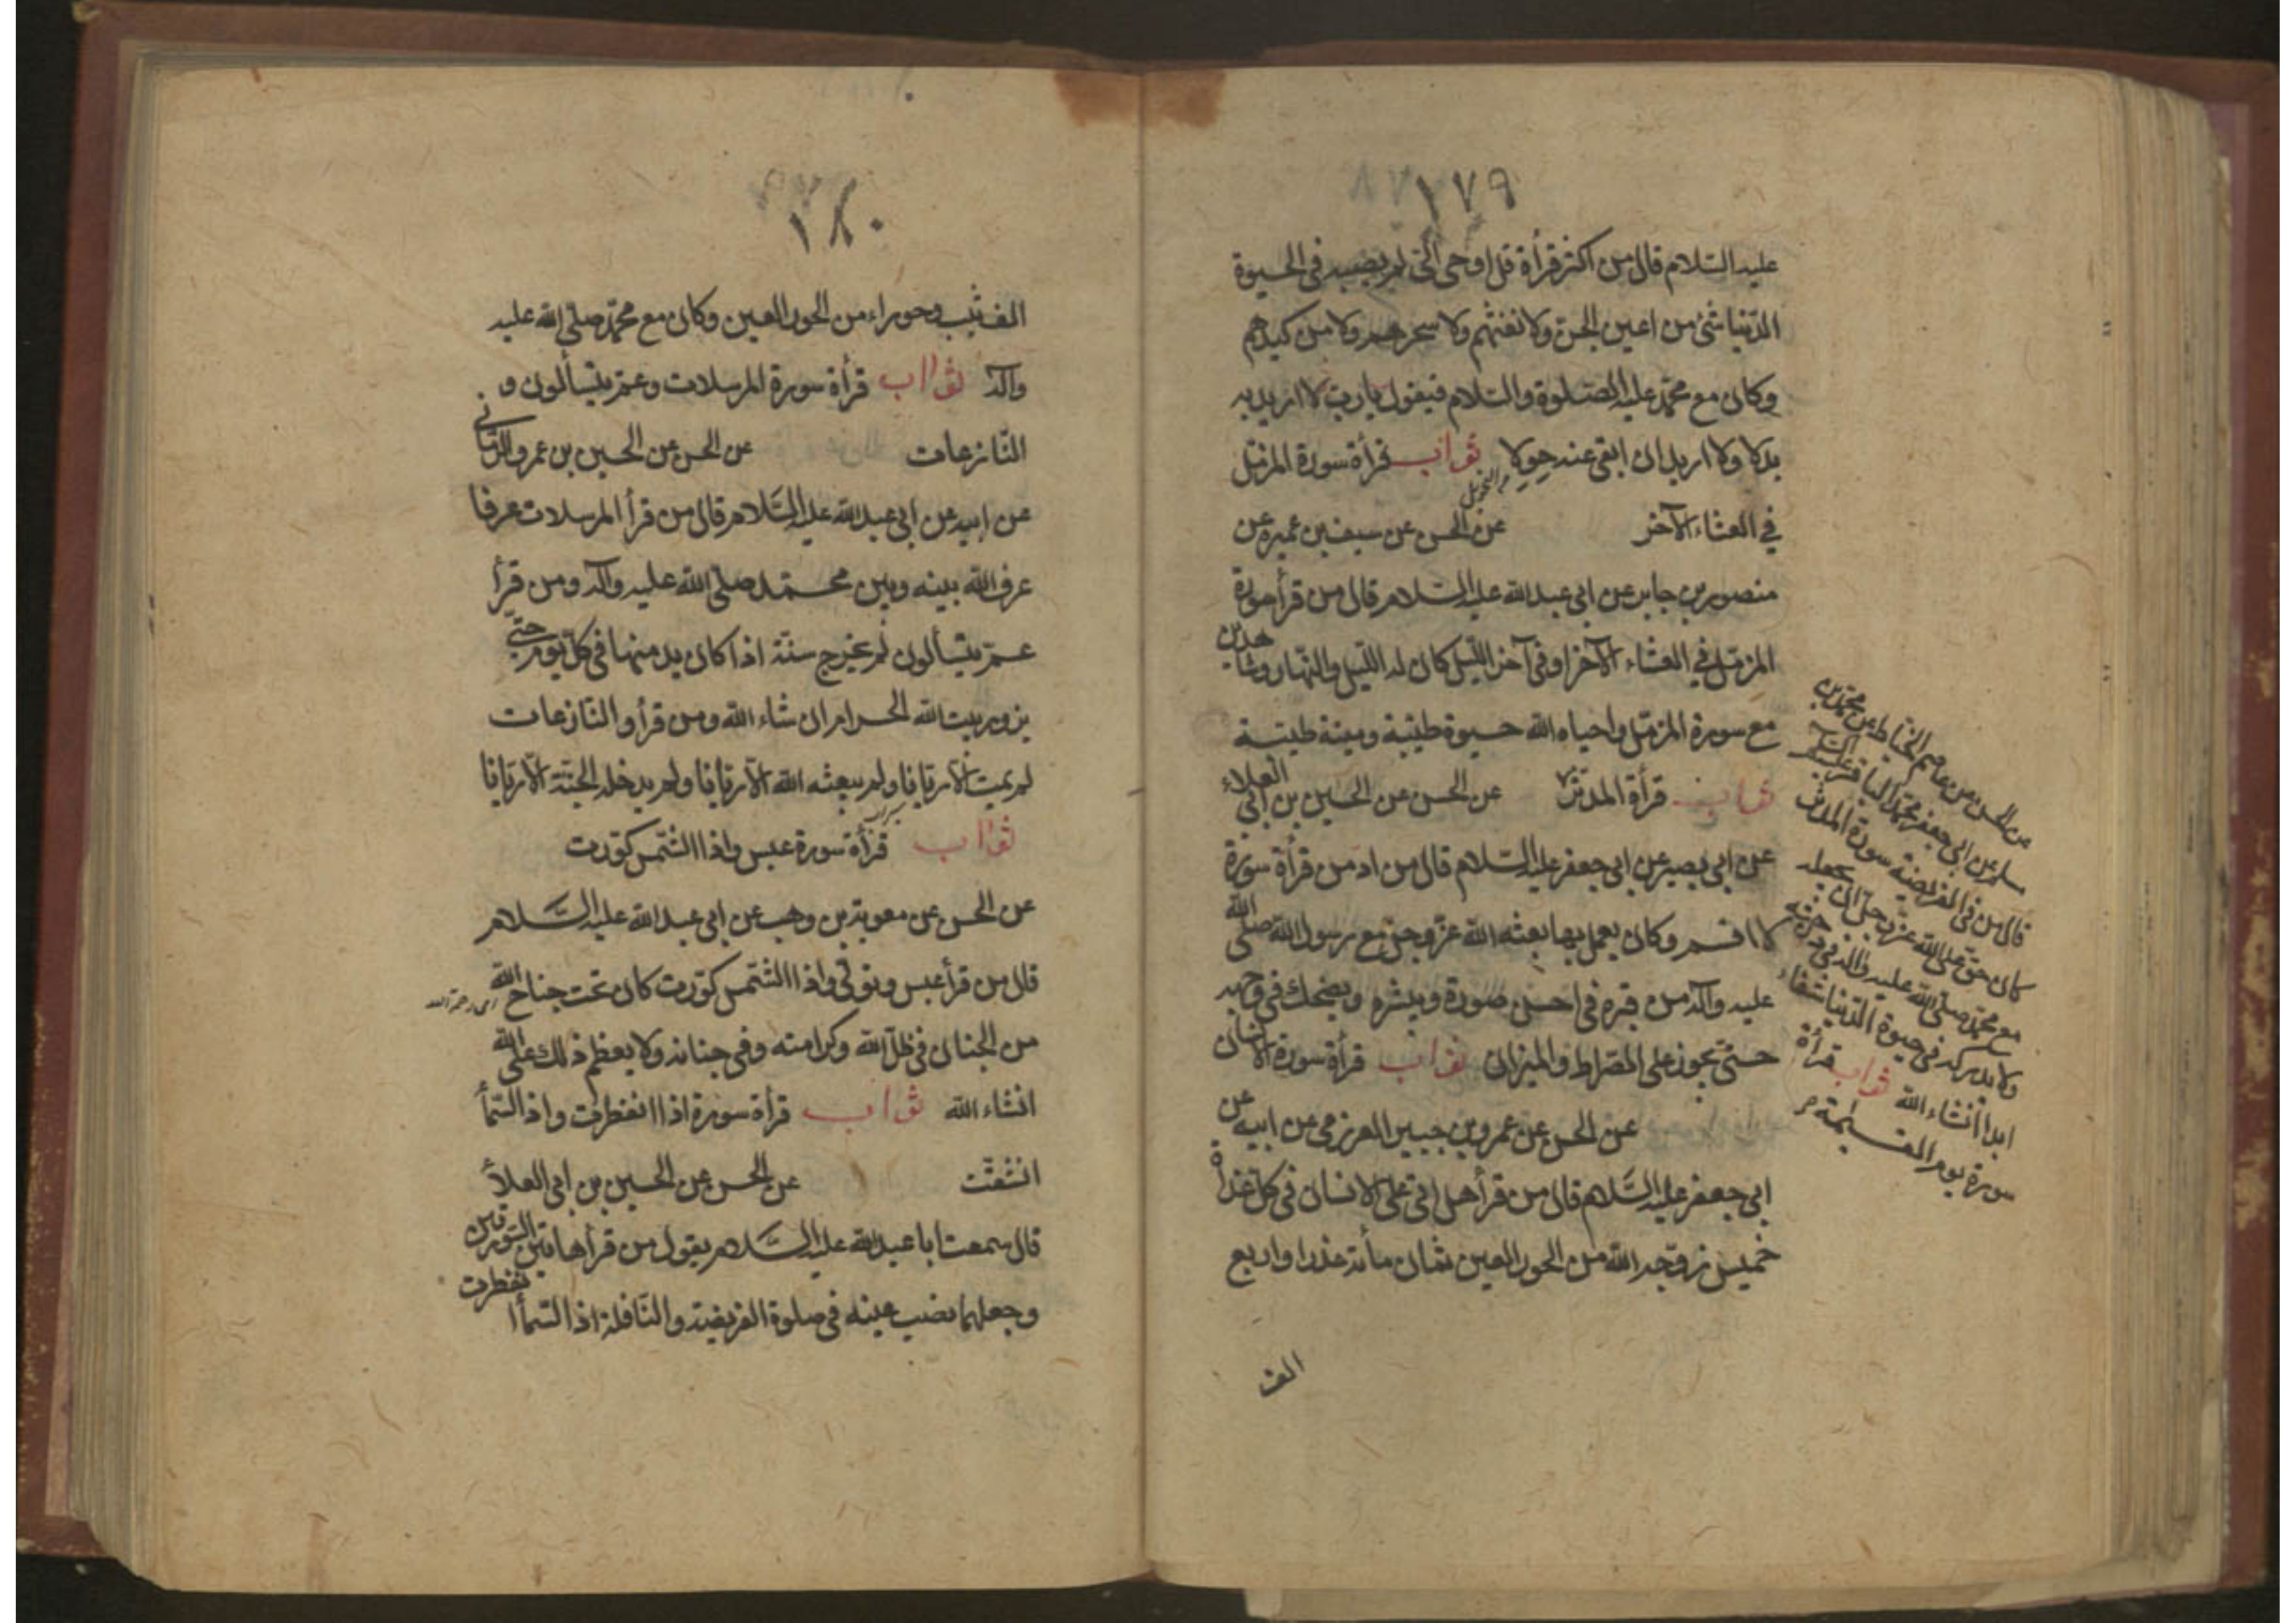 ١٧٩
عليه السلام قال من اكثر قرأة قل اوحى الىّ لم يصبه فى الحيوة
الدّنيا شئ من اعين الجنّ ولا نفثهم ولا سحرهم ولا من كيدهم
وكان مع محمّد عليه الصّلوة والسّلام فيقول يا ربّ لا اريد به
بدلا ولا اريد ان ابغى عنه حِوَلا ثواب قرأة سورة المزمّل
في العشاء الآخر عن الحسن عن سيف بن عميرة عن
منصور بن حابر عن ابي عبد الله عليه السّلام قال من قرأ سورة
المزمّل في العشاء الآخر او فى آخر اللّيل كان له اللّيل والنّهار شاهدين
مع سورة المزمّل واحياه الله حيوة طيّبة وميتة طيّبة
ثواب قرأة المدثر عن الحسن عن الحسين بن ابي العلاء
عن ابي بصير عن ابي جعفر عليه السّلام قال من ادمن قرأة سورة
لا اقسم وكان يعمل بها بعثه الله عزّ وجلّ مع رسول الله صلّى الله
عليه وآله من قبره في احسن صورة ويبشره ويضحك في وجهه
حتى يجوز على الصّراط والميزان ثواب قرأة سورة الانسان
عن الحسن عن عمرو بن جبير العرزمى عن ابيه عن
ابي جعفر عليه السّلام قال من قرأ هل اتى على الانسان في كلّ غداة
خميس زوّجه الله من الحور العين ثمان مأئة عذرا واربع
الف
عن الحسن عن عاصم الخيّاط عن محمّد بن
مسلم عن ابي جعفر محمّد الباقر عليه السلام
قال من قرأ في الفريضة سورة المدثر
كان حق على الله عزّ وجلّ ان يجعله
مع محمّد صلّى الله عليه وآله في درجته
ولا يدركه في حيوة الدّنيا شقاء
ابدا انشاء الله ثواب قرأة
سورة يوم القيمة
١٨٠
الف ثيّب وحوراء من الحور العين وكان مع محمّد صلّى الله عليه
وآله ثواب قرأة سورة المرسلات وعمّ يتسألون و
النّازعات عن الحسن عن الحسين بن عمرو الرّمّانى
عن ابيه عن ابي عبد الله عليه السّلام قال من قرأ المرسلات عرفا
عرف الله بينه وبين محمّد صلّى الله عليه وآله ومن قرأ
عمّ يتسألون لم يخرج سنته اذا كان يدمنها في كلّ يوم حتى
يزور بيت الله الحرام ان شاء الله ومن قرأ والنّازعات
لم يمت الّا ريّانا ولم يبعثه الله الّا ريّانا ولم يدخله الجنّة الّا ريّانا
ثواب قرأة سورة عبس واذا الشّمس كوّرت
عن الحسن عن معوية بن وهب عن ابي عبد الله عليه السّلام
قال من قرأ عبس وتولّى واذا الشّمس كوّرت كان تحت جناح الله
من الجنان في ظلّ الله وكرامته وفى جنانه ولا يعظم ذلك على الله
انشاء الله ثواب قرأة سورة اذا انفطرت واذ السّمأ
انشقّت عن الحسن عن الحسين بن ابي العلأ
قال سمعت ابا عبد الله عليه السّلام يقول من قرأ هاتين السّورتين
وجعلهما نصب عينه في صلوة الفريضة والنّافلة اذا السّمأ انفطرت